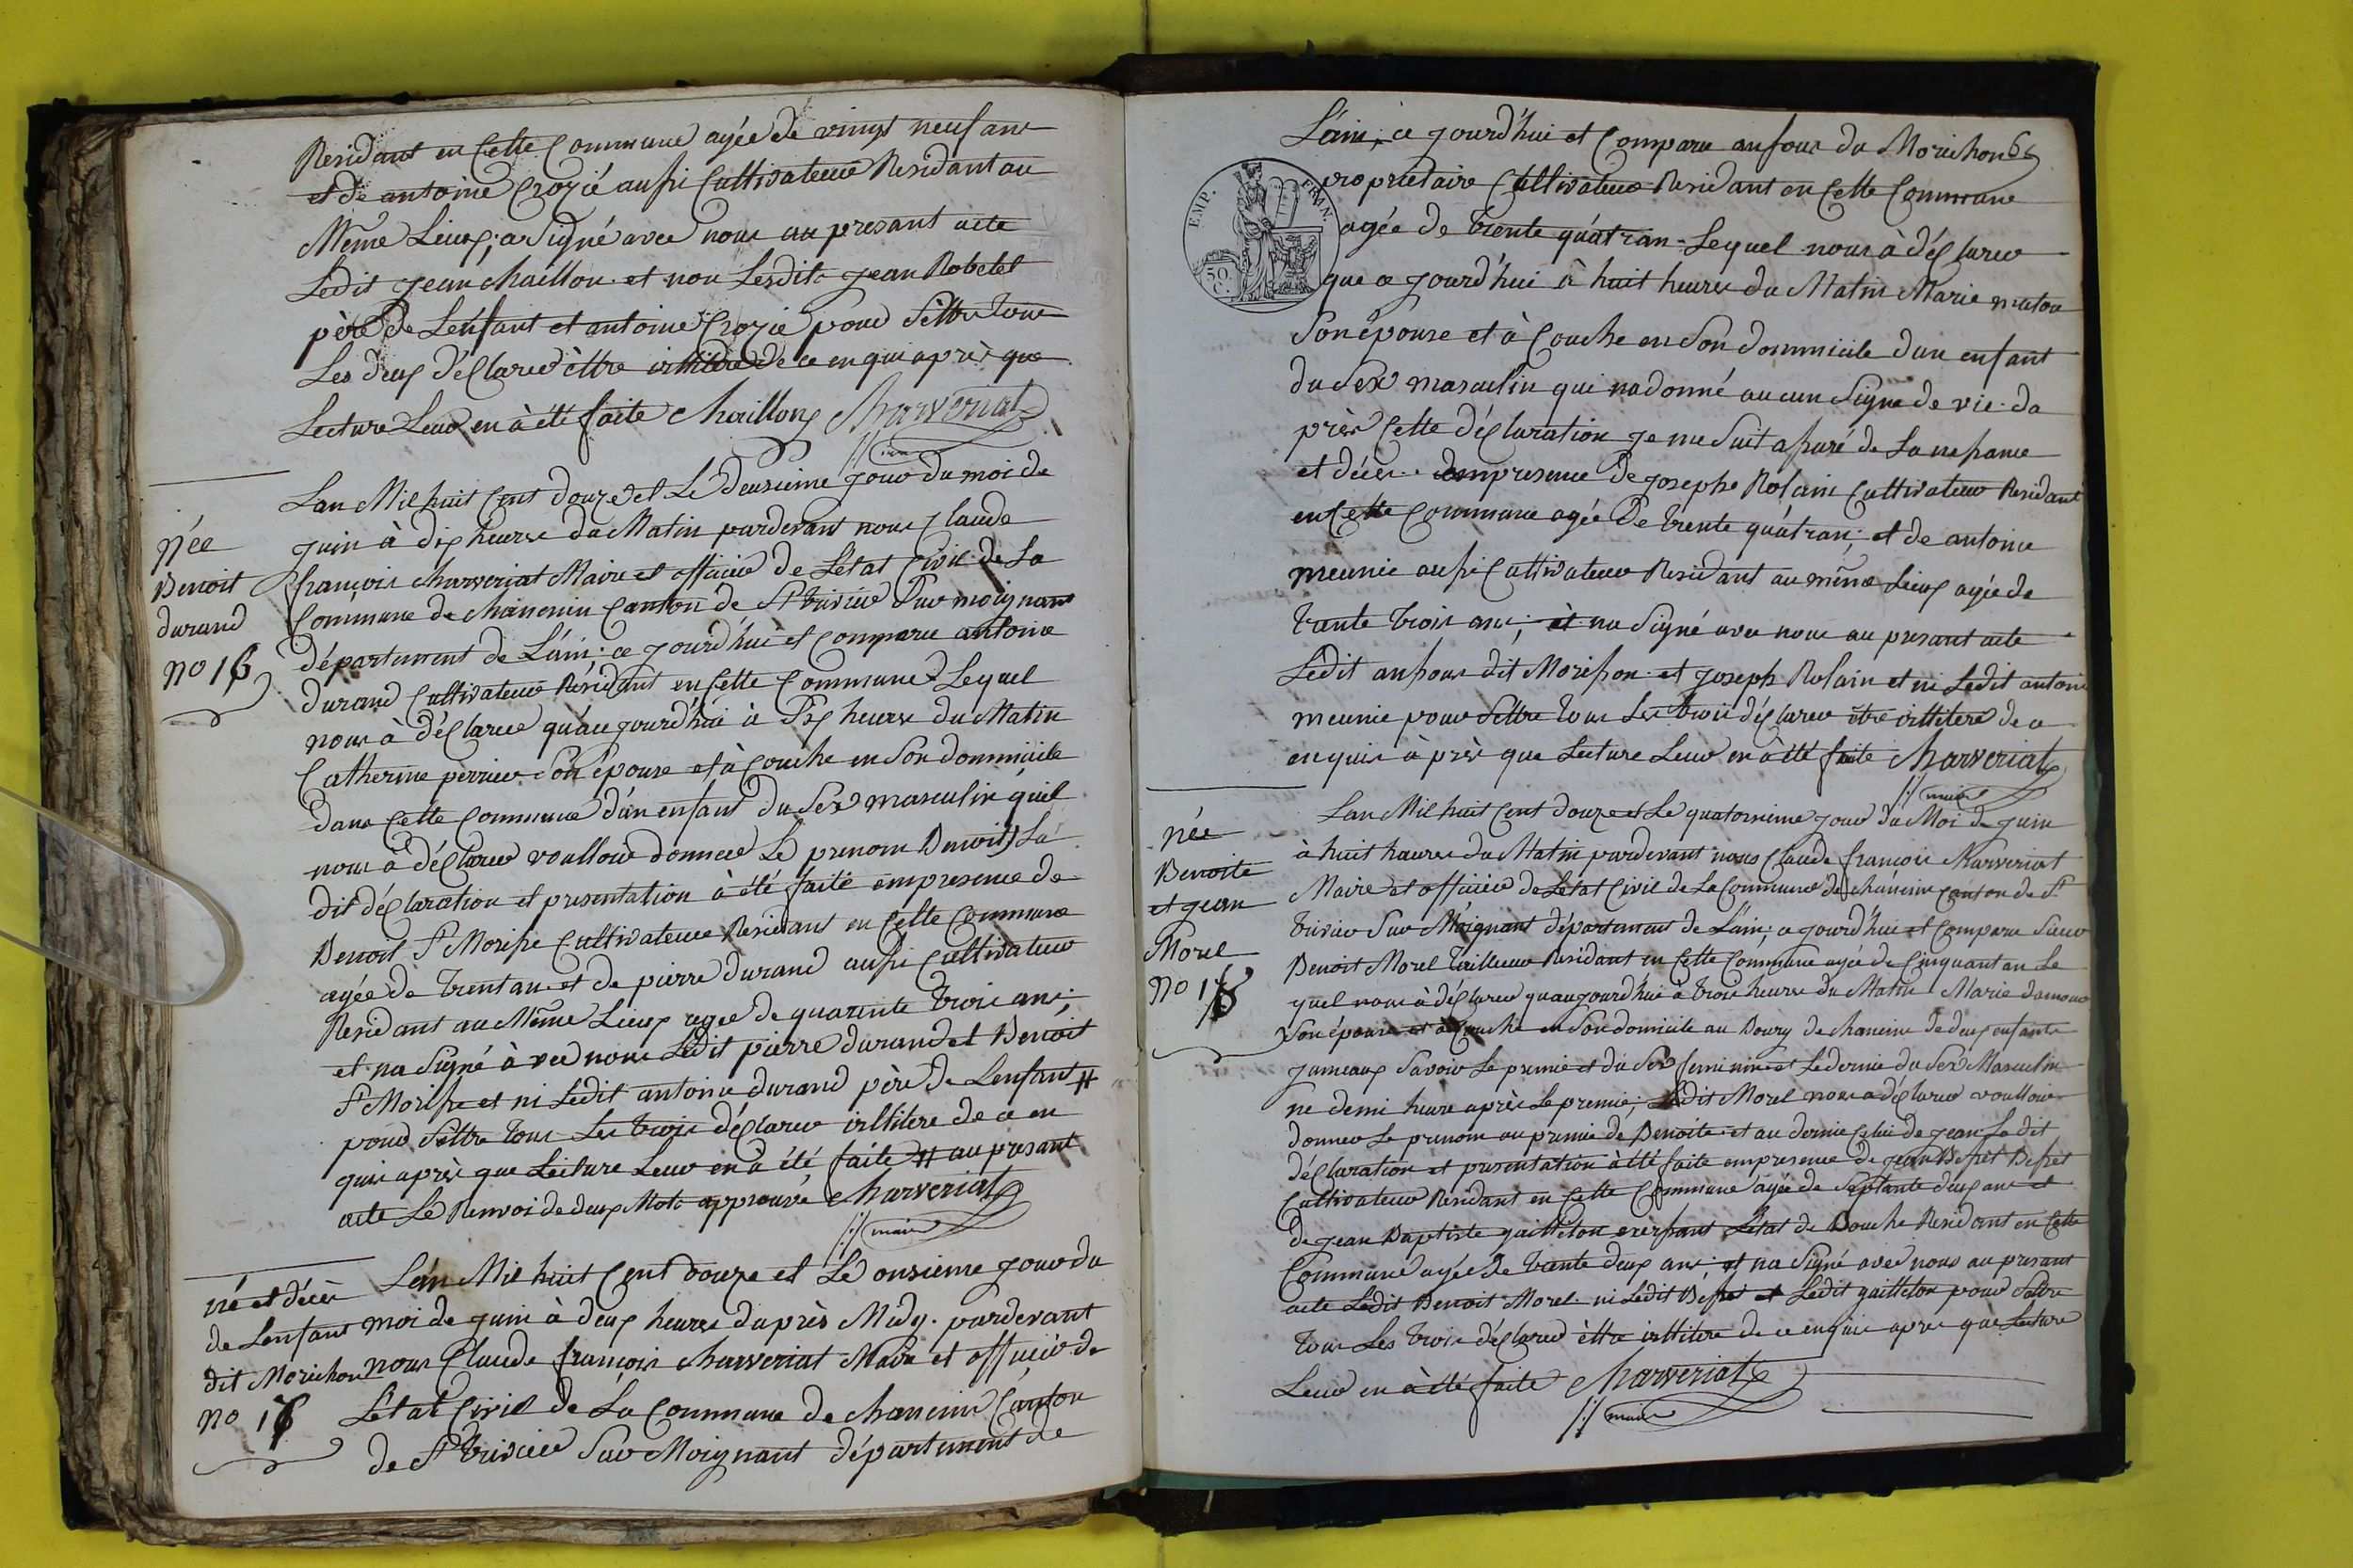 Residant en Cette Commune agée de vingt neuf ans
et de antoine Crozié aussi Cultivateur Residant au
Même Lieux; a Signé avec nous au presant acte
Ledit jean chaillon et non Lesdits jean Robelet
père de Lenfant et antoine Crozie pour Settre tous
Les deux déClarer être illitere de ce enquis après que
Lecture Leur en à été faite Chaillon Charveriat
Lan Mil huit Cent douze et Le deusieme jour du moi de
juin à dix heures du Matin pardevant nous Claude
françois Charveriat Maire et officier de Létat Civil de La
Commune de chaneins Canton de St trivier Sur moignans
département de Láin; ce jourd'hui et comparu antoine
durand Cultivateur Residant en Cette Commune Lequel
nous à déClarer qu'au jourd'hui à Six heures du Matin
Catherine perrier Son épouse et à Couche en Son dommicile
dans Cette Commune d'un enfant du Sex masculin quil
nous à déClarer voulloir donner Le prenom Benoit, La
dit déClaration et presentation à été faite empresence de
Benoit St Morisse Cultivateur Residant en Cette Commune
agée de trent an et de pierre durand aussi Cultivateur
Residant au Même Lieux agée de quarente trois ans;
et na Signé à vec nous Ledit pierre durand et Benoit
St Morisse et ni Ledit antoine durand père de Lenfant #
pour Settre tous Les trois déClarer illitere de ce en
quis après que Lecture Leur en à été faite # au presant
acte Le Renvoi de deux Mots approuvé Charveriat
maire
née
Benoit
durand
no 16
Lán Mil huit Cent douze et Le onsieme jour du
moi de juin à deux heures daprès Midy. pardevant
nous Claude françois Charveriat Maire et officier de
Létat Civil de La Commune de chaneins Canton
de St trivier Sur Moignant département de
né et décès
de Lenfant
dit Morichon
no 17
Láin; ce jourd'hui et Comparu anfour du Morichon
EMP. FRAN.
50 C.
proprietaire Cultivateur Residant en Cette Commune
agée de trente quátran Lequel nous à déClarer
que ce jourd'hui à huit heures du Matin Marie maton
Son épouse et à Couche en Son dommicile dun enfant
du Sex masculin qui na donné aucun Signe de vie. da
près Cette déClaration je me Suit assuré de La nessance
et décès. empresence de josephe Rolain Cultivateur Residant
en Cette Commune agée de trente quátran; et de antoine
meunié aussi Cultivateur Residant au même Lieux agée de
trente trois ans; et na Signé avec nous au presant acte
Ledit dit et joseph Rolain et ni Ledit antoine
meunie pour Settre tous Les trois déClarer être illitere de ce
enquis à près que Lecture Leur en à été faite Charveriat
maire
Lan Mil huit Cent douze et Le quatorsieme jour du Moi de juin
à huit heures du Matin pardevant nous Claude françois Charveriat
Maire et officier de Létat Civil de La Commune de chaneins Canton de St
trivier Sur Moignant département de Láin; ce jourd'hui et Comparu Sieur
Benoit Morel tailleur Residant en Cette Commune agée de Cinquant an Le
quel nous à déClarer quaujourd'hui à trois heures du Matin Marie damour
Son épouse et à Couche en Son domicile au Bourg de chaneins de deux enfants
jumeaux Savoir Le premié et du Sex feminin et Le dernié du Sex Masculin
ne demi heure après Le premié; Ledit Morel nous à déClarer voulloir
donner Le prenom au premié de Benoite et au dernié Celui de jean La dit
déClaration et presentation à été faite empresence de jean Besset
Cultivateur Residant en Cette Commune agée de Septante deux ans et
de jean Baptiste gailleton Létat de Residant en Cette
Commune agée de trente deux ans et na Signé avec nous au presant
acte Ledit Benoit Morel ni Ledit et Ledit gailleton pour Settre
tous Les trois déClarer être illitere de ce enquis après que Lecture
Leur en à été faite Charveriat
maire
née
Benoite
et jean
Morel
no 18